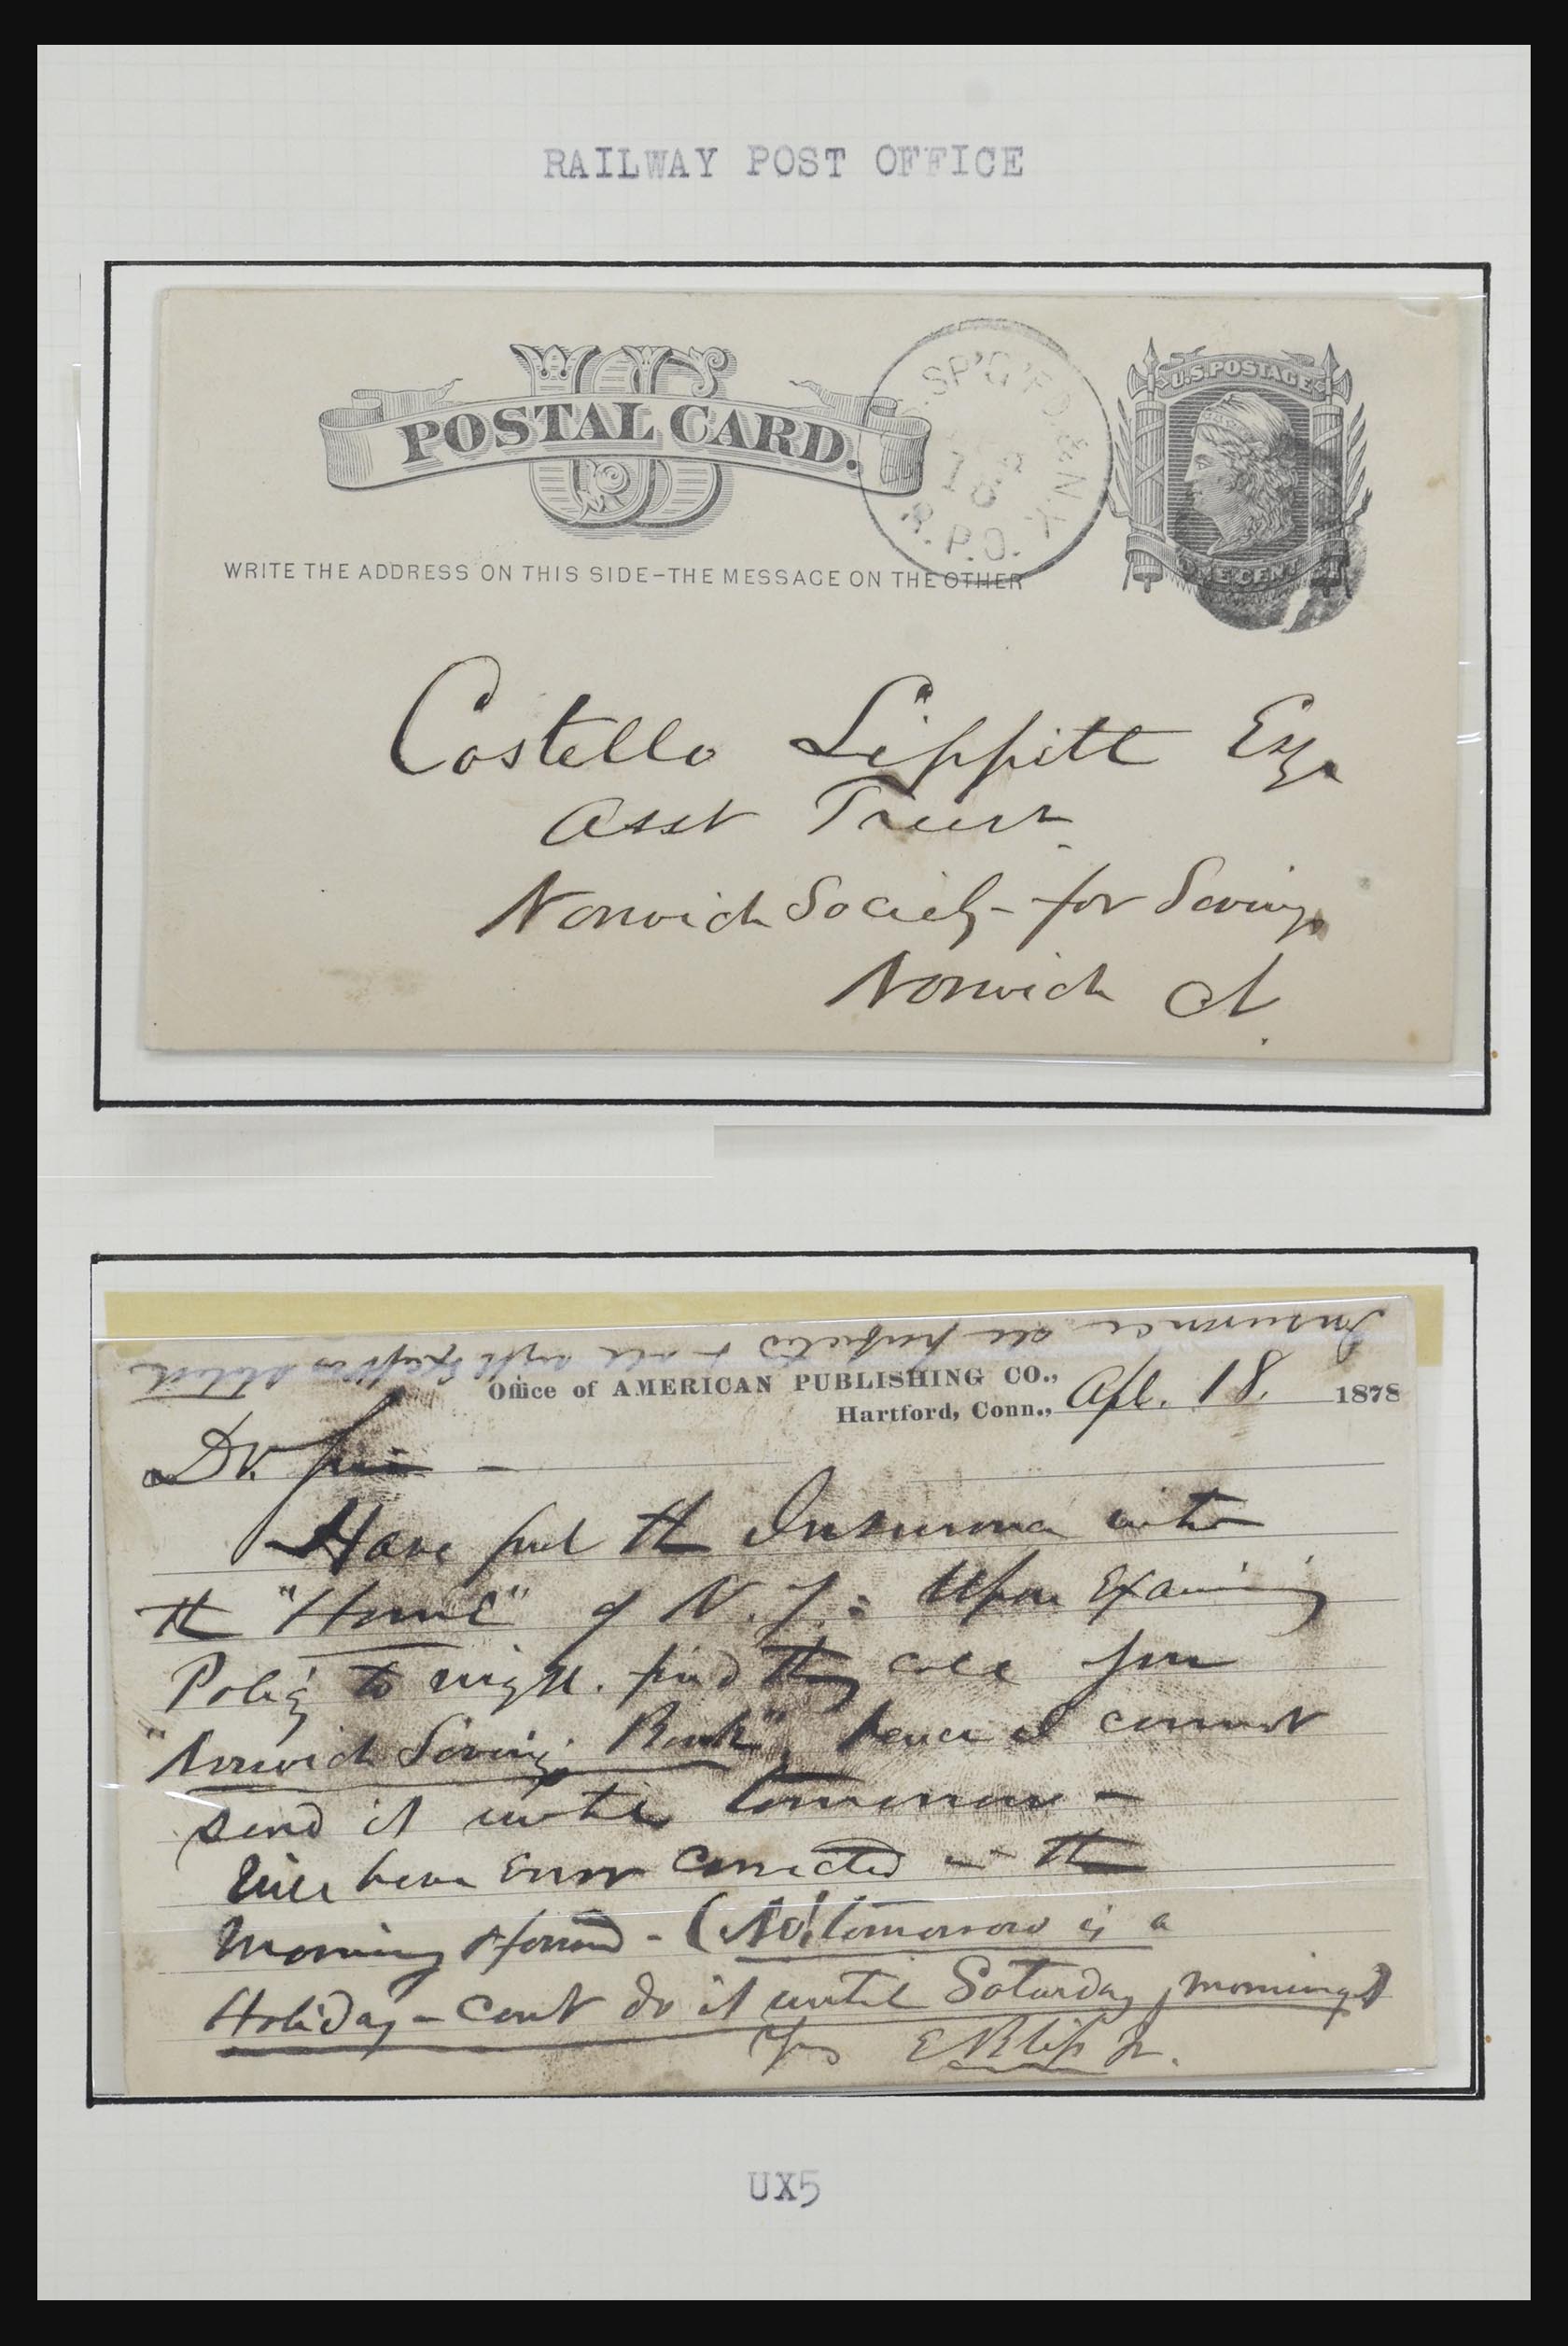 RAILWAY POST OFFICE
US
POSTAL CARD.
WRITE THE ADDRESS ON THIS SIDE-THE MESSAGE ON THE OTHER
SP'G'F'D. & N.Y.
18
R.P.O.
U.S. POSTAGE
ONE CENT
Costello Lippitt Esq
Asst Treasr
Norwich Society for Savings
Norwich Ct.
Insurance all &
Office of AMERICAN PUBLISHING CO.,
Hartford, Conn., Apl. 18. 1878
Dr. Sir -
Have put the Insurance with
the "Home" of N.Y. : Upon Examining
Policy to night. find they call you
"Norwich Savings Bank", hence I cannot
send it until tomorrow -
Will have Error corrected in the
Morning & forwd - (No! tomorrow is a
Holiday - cant do it until Saturday morning)
Yrs E Bliss Jr.
UX5